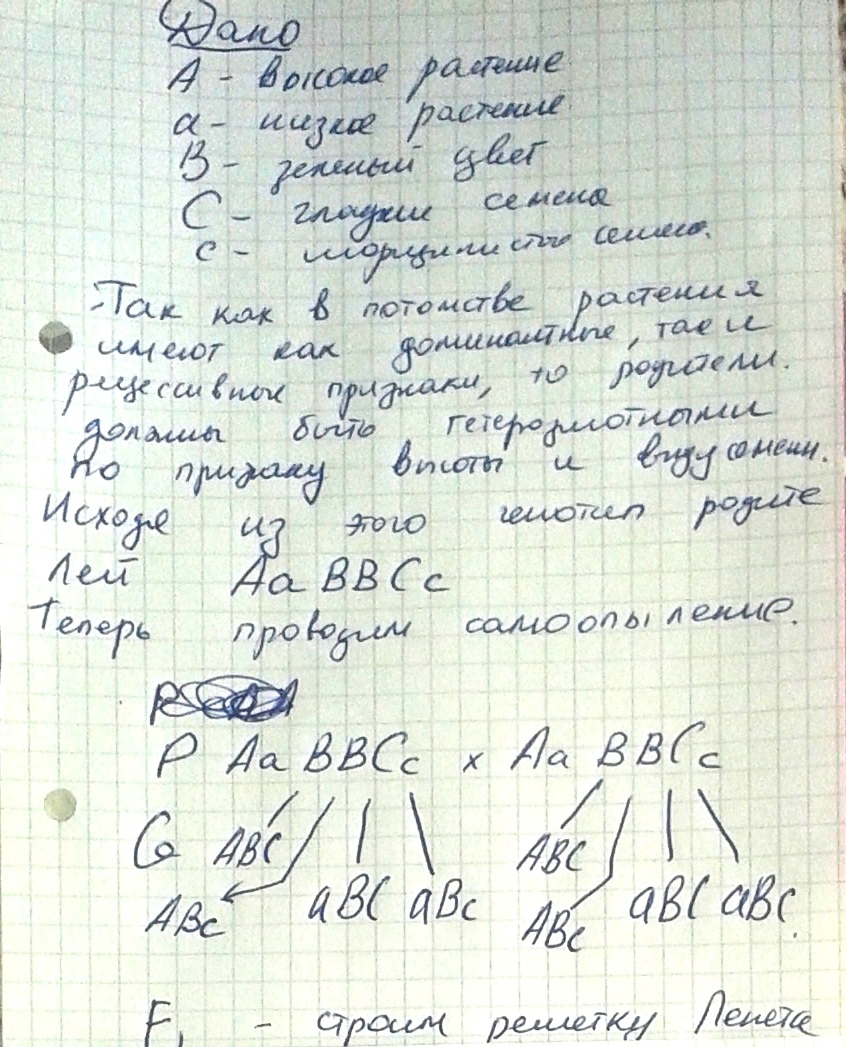 Дано
А - высокое растение
а - низкое растение
В - зеленый цвет
С - гладкие семена
с - морщинистые семена.
Так как в потомстве растения
имеют как доминантные, так и
рецессивные признаки, то родители.
должны быть гетерозиготными
по признаку высоты и виду семени.
Исходя из этого генотип родите
лей АаВВСс
Теперь проводим самоопыление.
Р АаВВСс х АаВВСс
G АВС АВС
АВс аВС аВс АВс аВС аВс.
F₁ - строим решетку Пенета